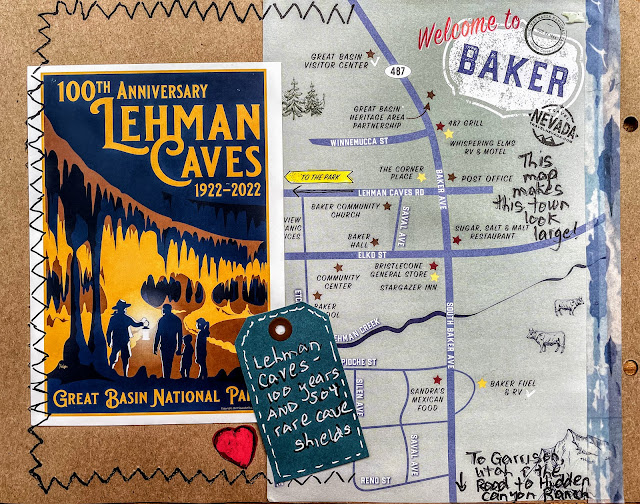 100TH ANNIVERSARY
LEHMAN
CAVES
1922–2022
GREAT BASIN NATIONAL PA
Lehman
Caves-
100 years
AND 504
rare cave
shields
Welcome to
BAKER
NEVADA
GREAT BASIN
VISITOR CENTER
487
GREAT BASIN
HERITAGE AREA
PARTNERSHIP
487 GRILL
WINNEMUCCA ST
WHISPERING ELMS
RV & MOTEL
TO THE PARK
THE CORNER
PLACE
POST OFFICE
LEHMAN CAVES RD
BAKER AVE
BAKER COMMUNITY
CHURCH
SAVAL AVE
BAKER
HALL
SUGAR, SALT & MALT
RESTAURANT
ELKO ST
BRISTLECONE
GENERAL STORE
COMMUNITY
CENTER
STARGAZER INN
BAKER
LEHMAN CREEK
SOUTH BAKER AVE
PIOCHE ST
SILEN AVE
SANDRA'S
MEXICAN
FOOD
BAKER FUEL
& RV
SAVAL AVE
RENO ST
This
map
makes
this town
look
large!
To Garrison,
Utah & the
Road to Hidden
Canyon Ranch